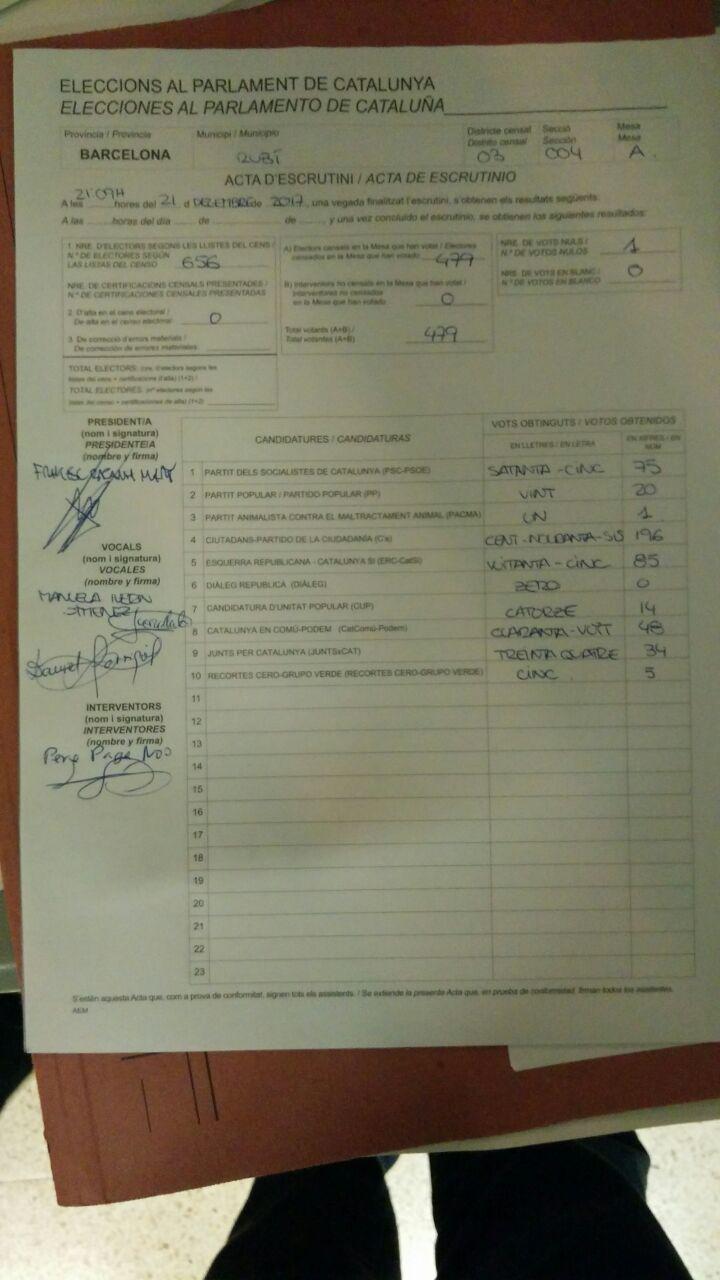 ELECCIONS AL PARLAMENT DE CATALUNYA
ELECCIONES AL PARLAMENTO DE CATALUÑA
Província / Provincia
Municipi / Municipio
Districte censal
Distrito censal
Secció
Sección
Mesa
Mesa
BARCELONA
RUBÍ
03
004
A
ACTA D'ESCRUTINI / ACTA DE ESCRUTINIO
A les 21:09H hores del 21 d DEZEMBRE de 2017, una vegada finalitzat l'escrutini, s'obtenen els resultats següents:
A las ____ horas del día ____ de ____ de ____, y una vez concluido el escrutinio, se obtienen los siguientes resultados:
1. NRE. D'ELECTORS SEGONS LES LLISTES DEL CENS /
N.º DE ELECTORES SEGÚN
LAS LISTAS DEL CENSO 656
NRE. DE CERTIFICACIONS CENSALS PRESENTADES /
N.º DE CERTIFICACIONES CENSALES PRESENTADAS
2. D'alta en el cens electoral /
De alta en el censo electoral: 0
3. De correcció d'errors materials /
De corrección de errores materiales
TOTAL ELECTORS: (nre. d'electors segons les
llistes del cens + certificacions d'alta) (1+2) /
TOTAL ELECTORES: (nº electores según las
listas del censo + certificaciones de alta) (1+2)
A) Electors censats en la Mesa que han votat / Electores
censados en la Mesa que han votado 479
B) Interventors no censats en la Mesa que han votat /
Interventores no censados
en la Mesa que han votado 0
Total votants (A+B) /
Total votantes (A+B) 479
NRE. DE VOTS NULS /
N.º DE VOTOS NULOS 1
NRE. DE VOTS EN BLANC /
N.º DE VOTOS EN BLANCO 0
PRESIDENT/A
(nom i signatura)
PRESIDENTE/A
(nombre y firma)
VOCALS
(nom i signatura)
VOCALES
(nombre y firma)
MANUELA
JIMENEZ
INTERVENTORS
(nom i signatura)
INTERVENTORES
(nombre y firma)
CANDIDATURES / CANDIDATURAS
VOTS OBTINGUTS / VOTOS OBTENIDOS
EN LLETRES / EN LETRA
EN XIFRES / EN NÚM
1 PARTIT DELS SOCIALISTES DE CATALUNYA (PSC-PSOE) SATANTA-CINC 75
2 PARTIT POPULAR / PARTIDO POPULAR (PP) VINT 20
3 PARTIT ANIMALISTA CONTRA EL MALTRACTAMENT ANIMAL (PACMA) UN 1
4 CIUTADANS-PARTIDO DE LA CIUDADANÍA (C's) CENT-NOUBANTA-SIS 196
5 ESQUERRA REPUBLICANA - CATALUNYA SI (ERC-CatSí) VUITANTA-CINC 85
6 DIÀLEG REPUBLICA (DIÀLEG) ZERO 0
7 CANDIDATURA D'UNITAT POPULAR (CUP) CATORZE 14
8 CATALUNYA EN COMÚ-PODEM (CatComú-Podem) QUARANTA-VUIT 48
9 JUNTS PER CATALUNYA (JUNTSxCAT) TREINTA QUATRE 34
10 RECORTES CERO-GRUPO VERDE (RECORTES CERO-GRUPO VERDE) CINC 5
11
12
13
14
15
16
17
18
19
20
21
22
23
S'estén aquesta Acta que, com a prova de conformitat, signen tots els assistents. / Se extiende la presente Acta que, en prueba de conformidad, firman todos los asistentes.
AEM